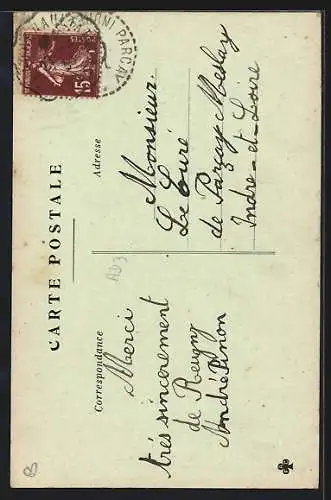 CARTE POSTALE
Correspondance
Merci
très sincerement
de Reugny
André Pinon
Adresse
Monsieur
Le Curé
de Parçay Meslay
Indre-et-Loire
POSTES
15
PARÇAY
AD3